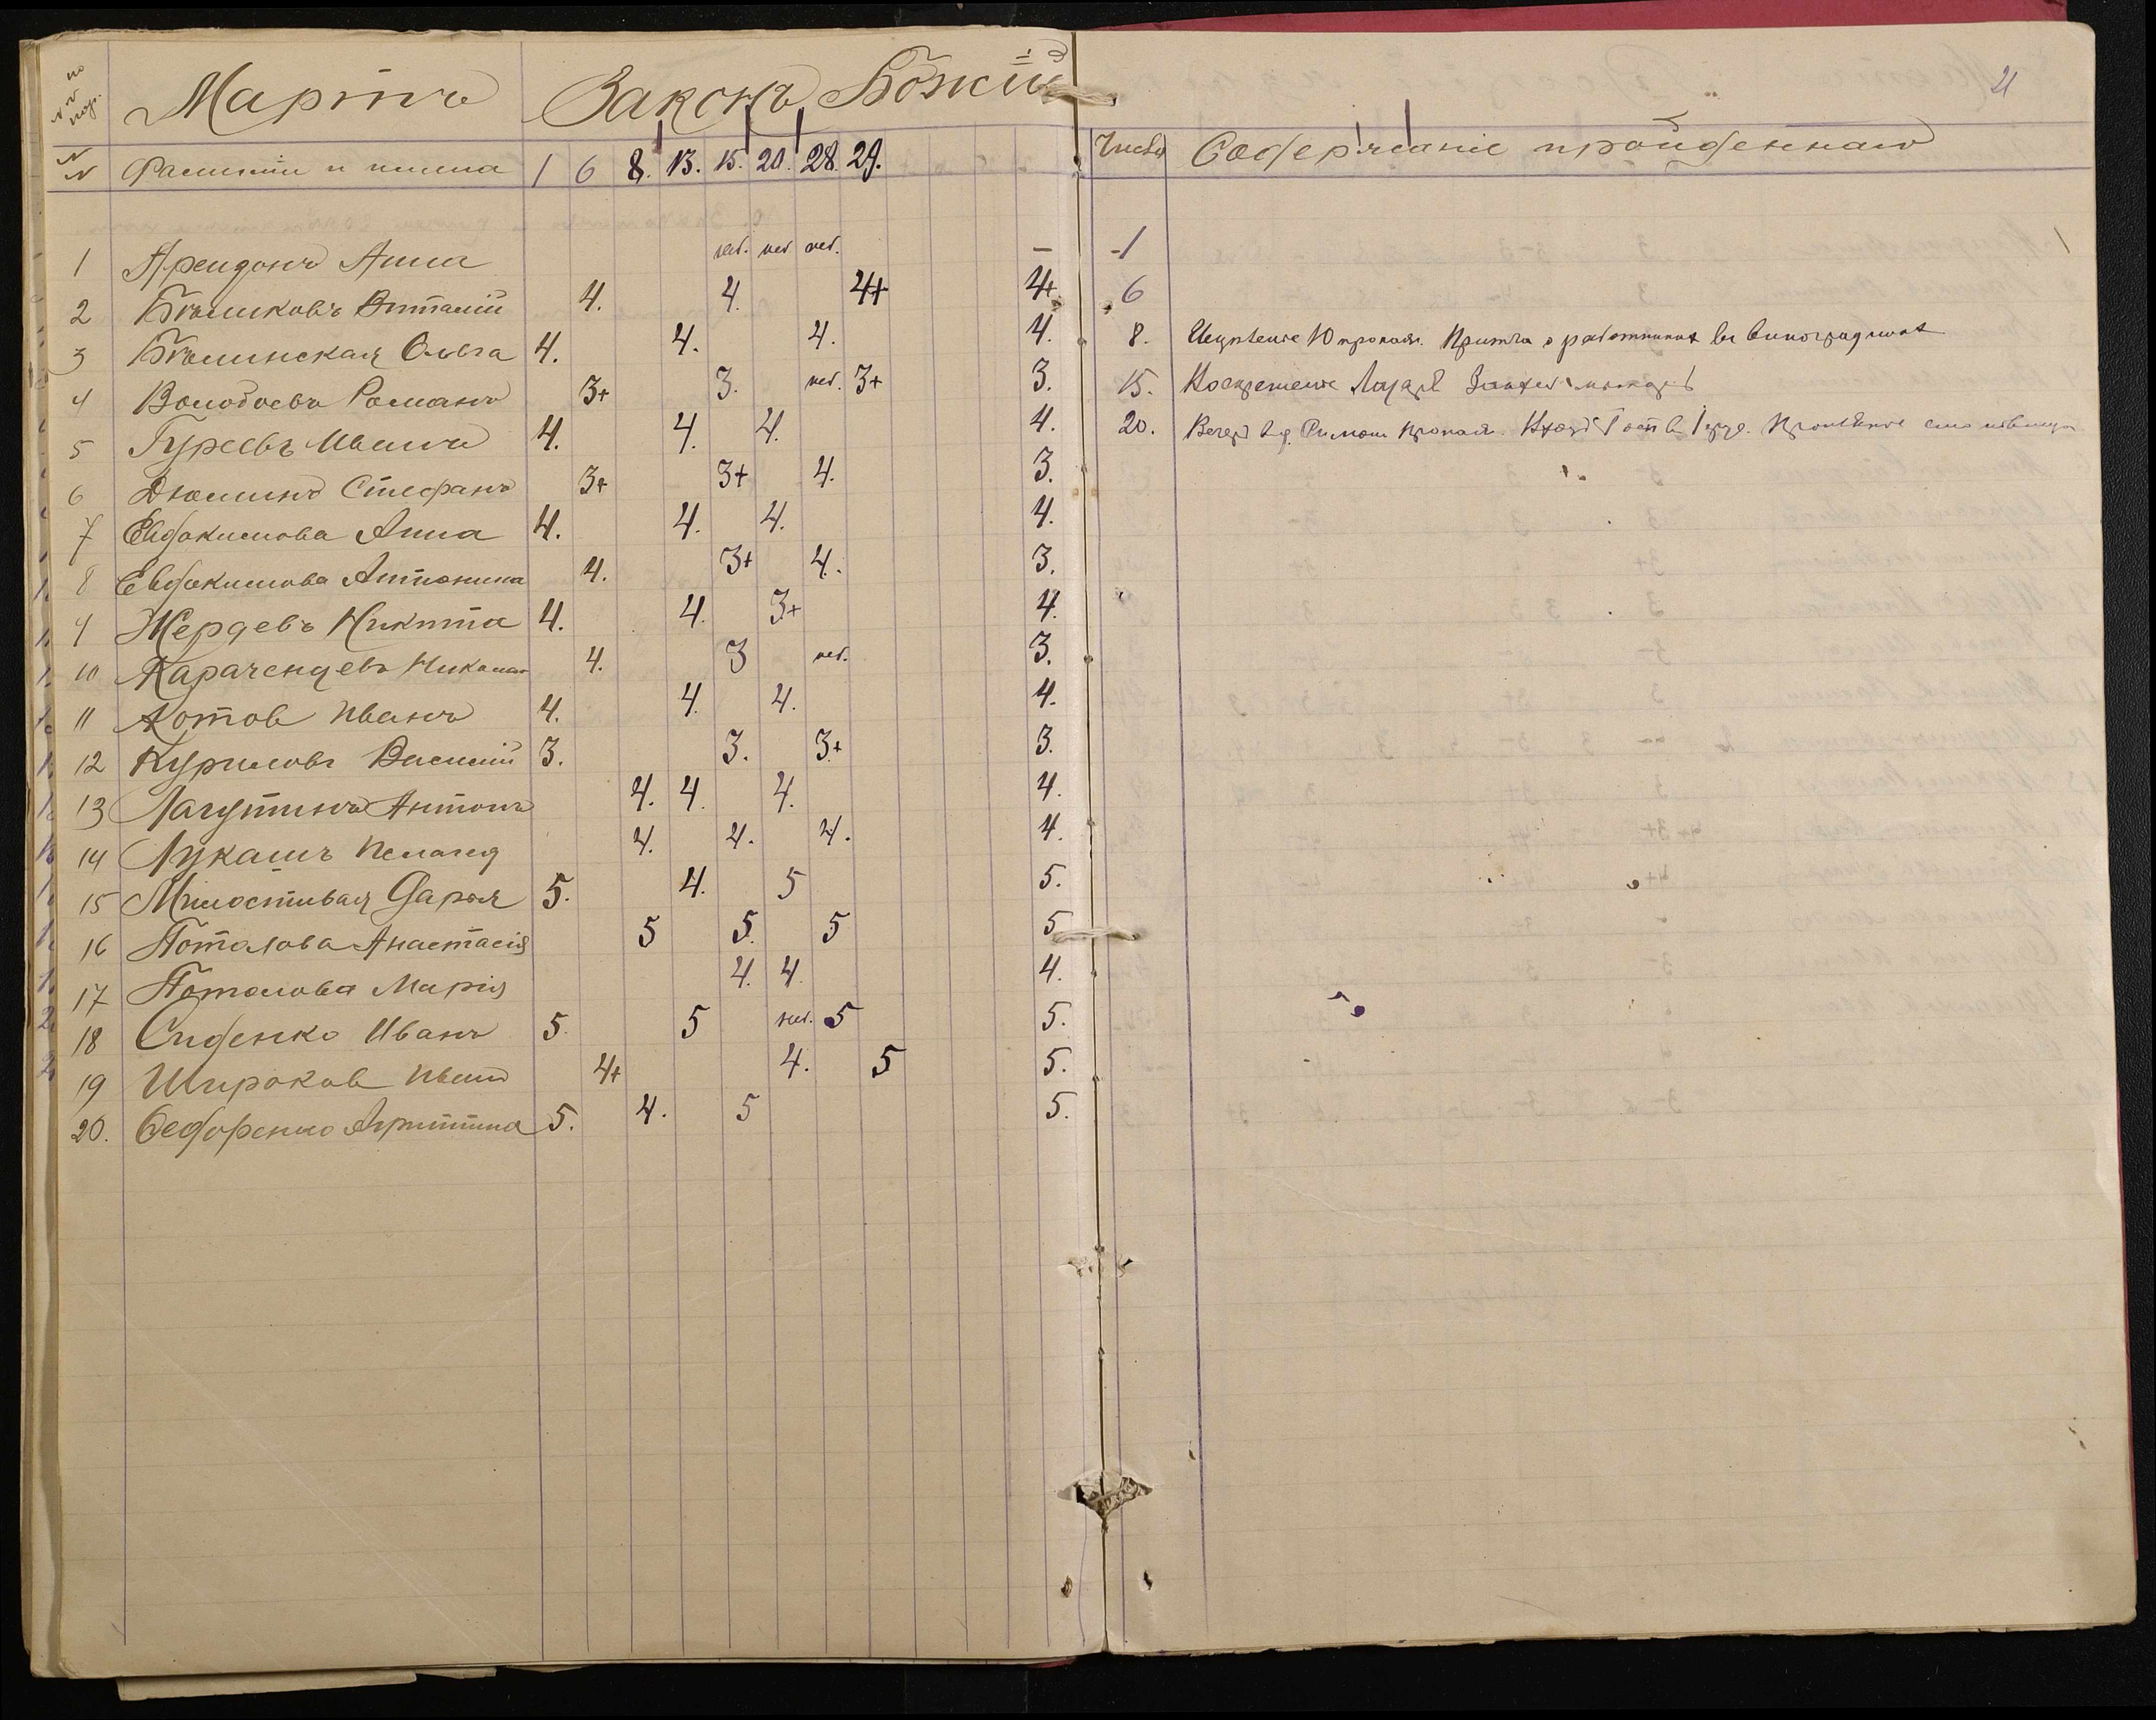 №№ по пор. Мартъ Законъ Божій
№№ Фамиліи и имена 1 6 8. 13. 15. 20. 28. 29.
1 Арендонъ Анна нет. нет. нет. –
2 Бѣликовъ Виталій 4. 4. 4+ 4+
3 Бѣлинская Ольга 4. 4. 4. 4.
4 Волобоевъ Романъ 3+ 3. нет. 3+ 3.
5 Гуреевъ Иванъ 4. 4. 4. 4.
6 Дюминъ Стефанъ 3+ 3+ 4. 3.
7 Евдокимова Анна 4. 4. 4. 4.
8 Евдокимова Антонина 4. 3+ 4. 3.
9 Жердевъ Никита 4. 4. 3+ 4.
10 Караченцевъ Николай 4. 3 нет. 3.
11 Котов Иванъ 4. 4. 4. 4.
12 Куриловъ Василій 3. 3. 3+ 3.
13 Лагутинъ Антонъ 4. 4. 4. 4.
14 Лукашъ 4. 4. 4. 4.
15 Милостивая Дарья 5. 4. 5 5.
16 Поталова Анастасія 5 5. 5 5
17 Поталова Марія 4. 4. 4.
18 Сиденко Иванъ 5. 5 нет. 5 5.
19 Широков Иванъ 4+ 4. 5 5.
20. Ѳедоренко 5. 4. 5 5.
21
Числа Содержаніе пройденнаго
1
6
8. Исцѣленіе 10 прокаж. Притча о работникахъ въ виноградникѣ
15. Воскрешеніе Лазаря
20. Вечеря Прокаж. Входъ Госп. въ Іерус.